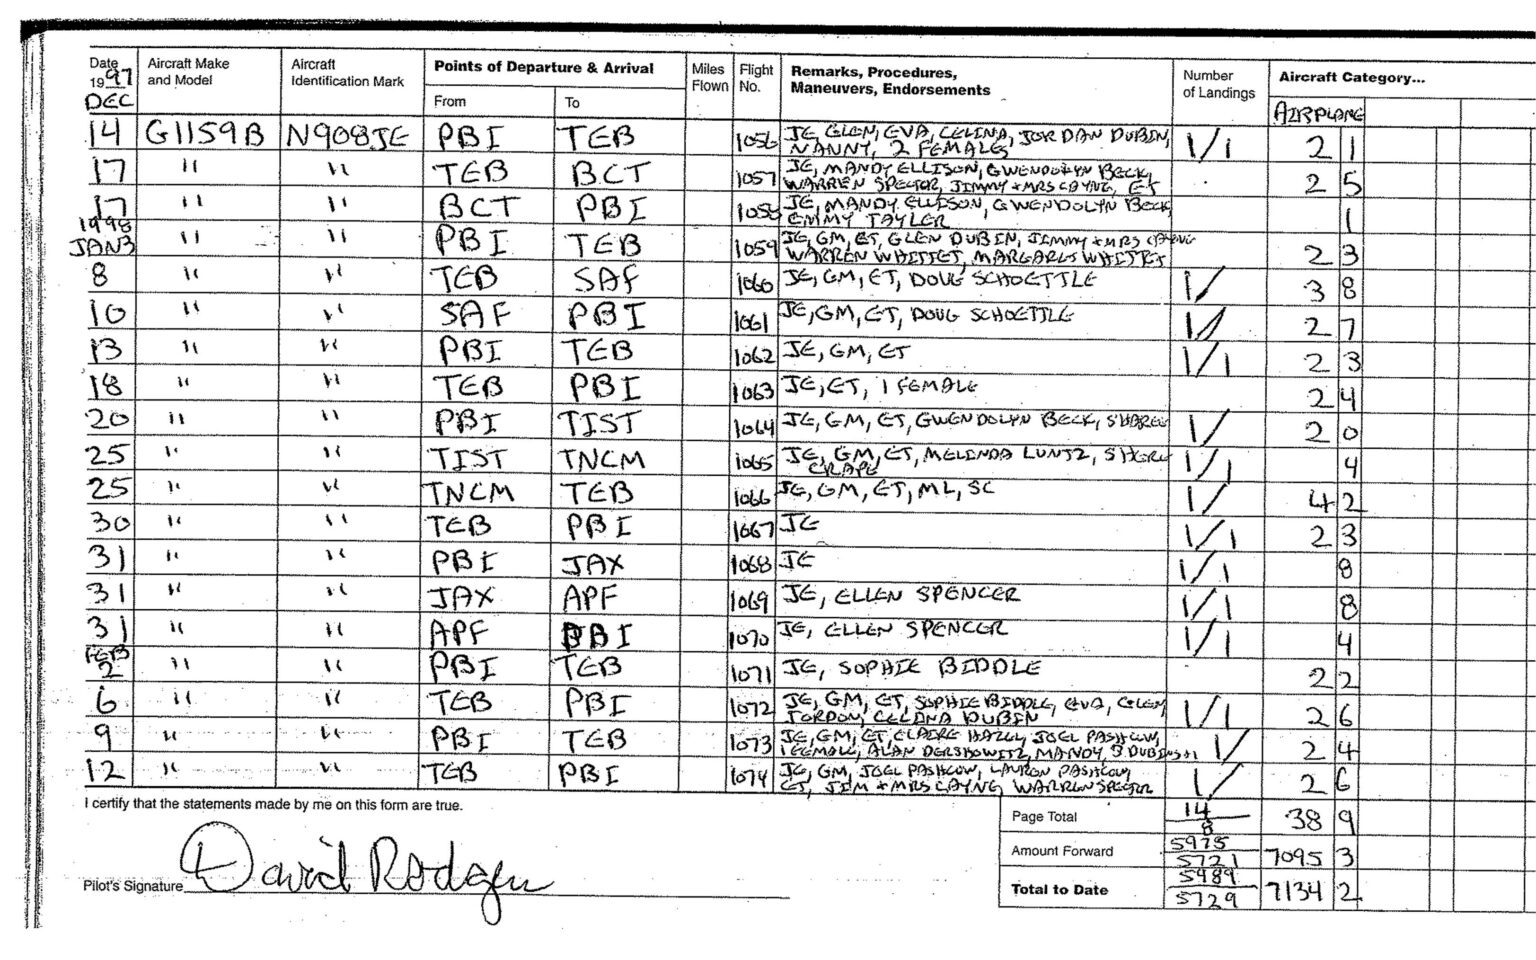 Date Aircraft Make and Model Aircraft Identification Mark Points of Departure & Arrival Miles Flown Flight No. Remarks, Procedures, Maneuvers, Endorsements Number of Landings Aircraft Category...
1997 DEC From To AIRPLANE
14 G1159B N908JE PBI TEB 1056 JE, GLEN, EVA, CELINA, JORDAN DUBIN, 1/1 2 1
NANNY, 2 FEMALES
17 " " TEB BCT 1057 JE, MANDY ELLISON, GWENDOLYN BECK, 2 5
WARREN SPECTOR, JIMMY + MRS CAYNE, ET
17 " " BCT PBI 1058 JE, MANDY ELLISON, GWENDOLYN BECK, 1
EMMY TAYLER
1998
JAN 3 " " PBI TEB 1059 JE, GM, ET, GLEN DUBIN, JIMMY + MRS CAYNE 2 3
WARREN MARGARET
8 " " TEB SAF 1060 JE, GM, ET, DOUG SCHOETTLE 1/ 3 8
10 " " SAF PBI 1061 JE, GM, ET, DOUG SCHOETTLE 1/ 2 7
13 " " PBI TEB 1062 JE, GM, ET 1/1 2 3
18 " " TEB PBI 1063 JE, ET, 1 FEMALE 2 4
20 " " PBI TIST 1064 JE, GM, ET, GWENDOLYN BECK, 1/ 2 0
25 " " TIST TNCM 1065 JE, GM, ET, MELINDA LUNTZ, 1/1 4
CRAPE
25 " " TNCM TEB 1066 JE, GM, ET, ML, SC 1/ 4 2
30 " " TEB PBI 1067 JE 1/1 2 3
31 " " PBI JAX 1068 JE 1/1 8
31 " " JAX APF 1069 JE, ELLEN SPENCER 1/1 8
31 " " APF PBI 1070 JE, ELLEN SPENCER 1/1 4
FEB
2 " " PBI TEB 1071 JE, SOPHIE BIDDLE 2 2
6 " " TEB PBI 1072 JE, GM, ET, SOPHIE BIDDLE, EVA, GLEN, 1/1 2 6
JORDON, CELINA DUBIN
9 " " PBI TEB 1073 JE, GM, ET, CLAIRE HAZEL, JOEL PASHCOW, 1/ 2 4
1 FEMALE, ALAN DERSHOWITZ, MANDY, 3 DUBINS+1
12 " " TEB PBI 1074 JE, GM, JOEL PASHCOW, PASHCOW, 1/ 2 6
ET, JIM + MRS CAYNE, WARREN SPECTOR
I certify that the statements made by me on this form are true.
Page Total 14 8 38 9
Amount Forward 5975 5721 7095 3
Total to Date 5989 5729 7134 2
Pilot's Signature David Rodgers